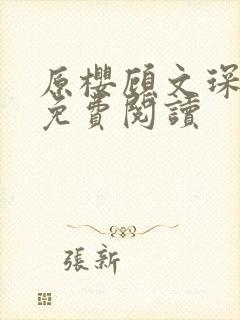 原櫻顧文琛
免費閱讀
張新